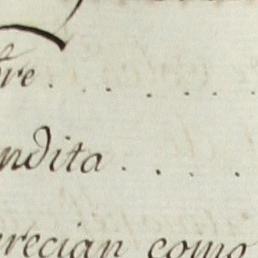 re . . . . . .
ndita . . . .
erecian como